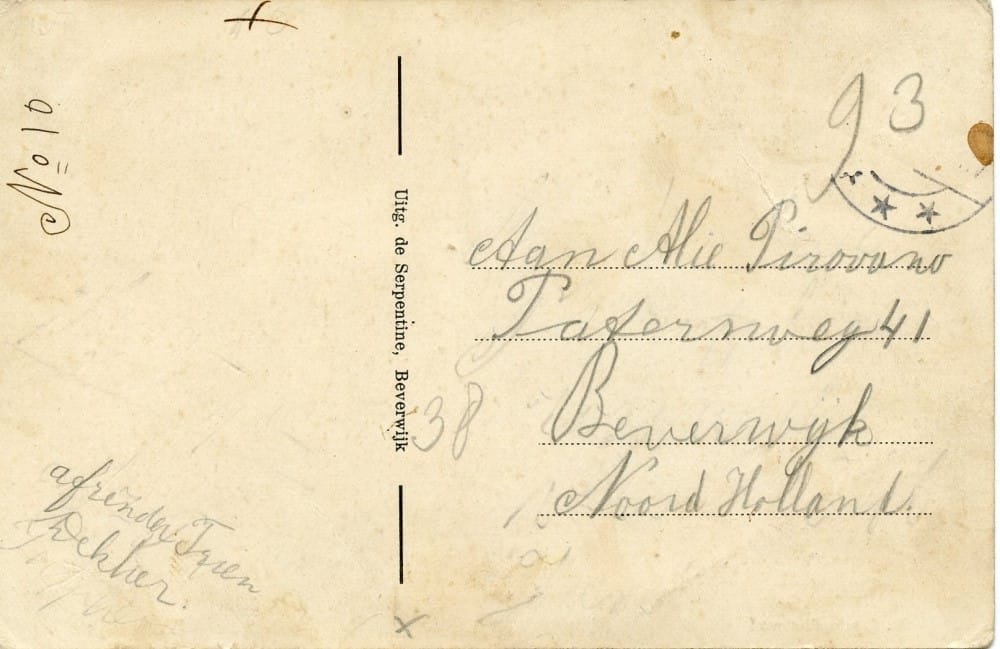 93
Uitg. de Serpentine, Beverwijk
Aan Alie Pirovano
Paternweg 41
Beverwijk
Noord Holland.
38
afzender Trien
Dekker.